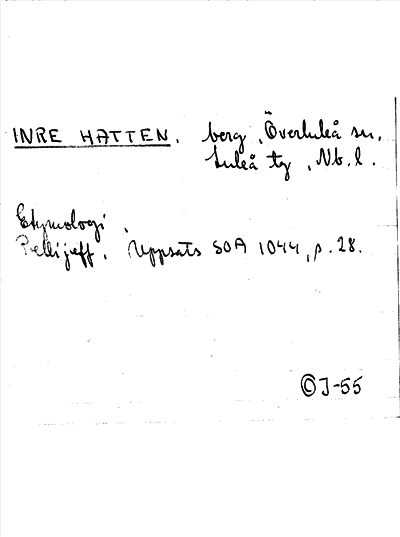 INRE HATTEN. berg, Överluleå sn,
Luleå tg, Nb. l.
Etymologi.
Pellijeff, Uppsats SOA 1044, p. 28.
©J-55